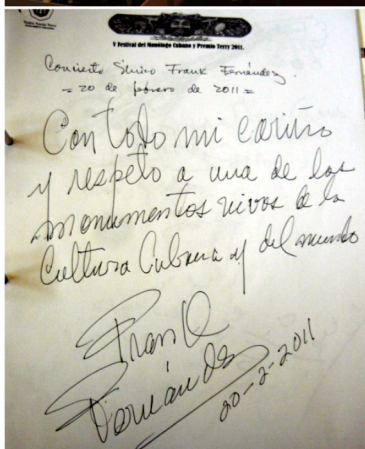 V Festival del Monólogo Cubano y Premio Terry 2011.
Concierto Frank Fernández.
= 20 de febrero de 2011 =
Con todo mi cariño
y respeto a una de los
monumentos vivos de la
Cultura Cubana y del mundo
Frank
Fernández
20-2-2011